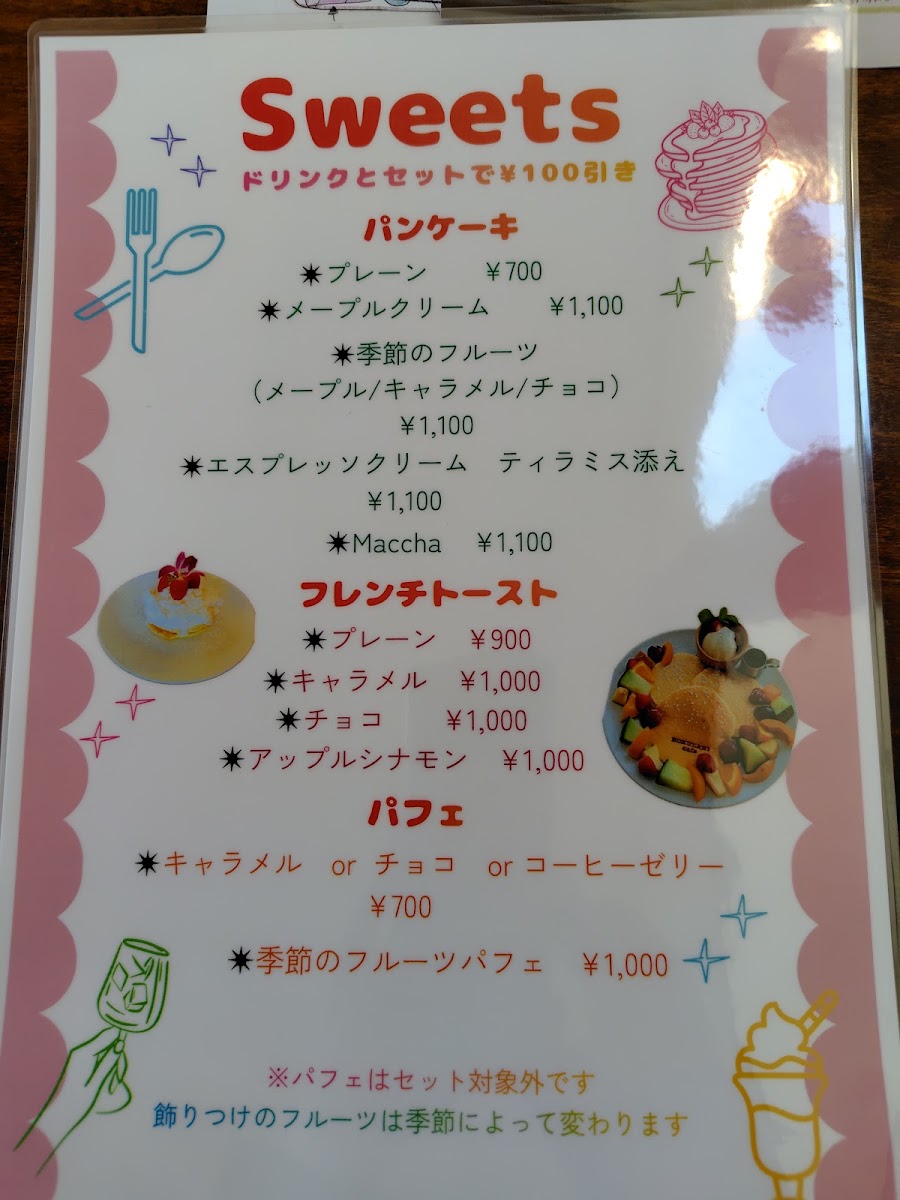 Sweets
ドリンクとセットで¥100引き
パンケーキ
✷プレーン ¥700
✷メープルクリーム ¥1,100
✷季節のフルーツ
(メープル/キャラメル/チョコ)
¥1,100
✷エスプレッソクリーム ティラミス添え
¥1,100
✷Maccha ¥1,100
フレンチトースト
✷プレーン ¥900
✷キャラメル ¥1,000
✷チョコ ¥1,000
✷アップルシナモン ¥1,000
パフェ
✷キャラメル or チョコ or コーヒーゼリー
¥700
✷季節のフルーツパフェ ¥1,000
※パフェはセット対象外です
飾りつけのフルーツは季節によって変わります